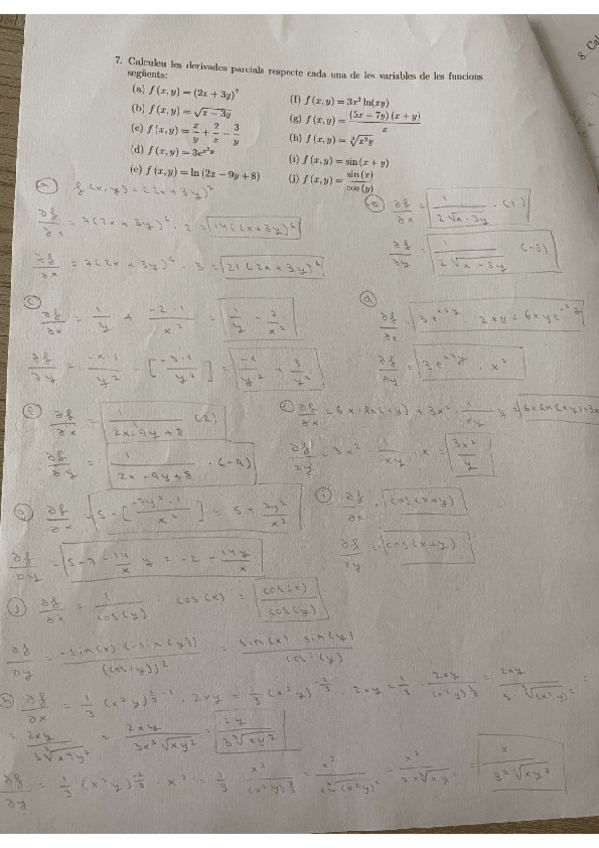 7. Calculeu les derivades parcials respecte cada una de les variables de les funcions
següents:
(a) f(x, y) = (2x + 3y)⁷
(f) f(x, y) = 3x² ln(xy)
(b) f(x, y) = √(x − 3y)
(g) f(x, y) = (5x − 7y)(x + y) / x
(c) f(x, y) = x/y + 2/x − 3/y
(h) f(x, y) = ∛(x²y)
(d) f(x, y) = 3e^(x²y)
(i) f(x, y) = sin(x + y)
(e) f(x, y) = ln(2x − 9y + 8)
(j) f(x, y) = sin(x) / cos(y)
8. Cal
a) f(x,y) = (2x + 3y)⁷
∂f/∂x = 7(2x + 3y)⁶ · 2 = 14(2x+3y)⁶
∂f/∂x = 7(2x + 3y)⁶ · 3 = 21(2x+3y)⁶
b) ∂f/∂x = 1/(2√x-3y) · (1)
∂f/∂y = 1/(2√x-3y) (-3)
c) ∂f/∂x = 1/y + (-2·1)/x² = 1/y - 2/x²
∂f/∂y = (-x·1)/y² - [(-3·1)/y²] = -x/y² + 3/y²
d) ∂f/∂x = 3e^(x²y) · 2xy = 6xye^(x²y)
∂f/∂y = 3e^(x²y) · x²
e) ∂f/∂x = 1/(2x-9y+8) (2)
∂f/∂y = 1/(2x-9y+8) · (-9)
∂f/∂x = 6x · ln(xy) + 3x² · 1/xy · y = 6x ln(xy)+3x
∂f/∂y = 3x² · 1/xy · x = 3x²/y
g) ∂f/∂x = 5 - [(-7y²·1)/x²] = 5 + 7y²/x²
∂f/∂y = 5-7-14/x y = -2 - 14y/x
i) ∂f/∂x = cos(x+y)
∂f/∂y = cos(x+y)
j) ∂f/∂x = 1/cos(y) · cos(x) = cos(x)/cos(y)
∂f/∂y = -sin(x)(-sin(y))/(cos(y))² = sin(x)·sin(y)/cos²(y)
h) ∂f/∂x = 1/3 (x²y)^(1/3-1) · 2xy = 1/3 (x²y)^(-2/3) · 2xy = 1/3 · 2xy/(x²y)^(2/3) = 2xy/(3·∛(x²y)²) =
= 2xy/(3∛x⁴y²) = 2xy/(3x∛xy²) = 2y/(3∛xy²)
∂f/∂y = 1/3 (x²y)^(-2/3) · x² = 1/3 · x²/(x²y)^(2/3) = x²/(3∛(x²y)²) = x²/(3x∛xy²) = x/(3∛xy²)